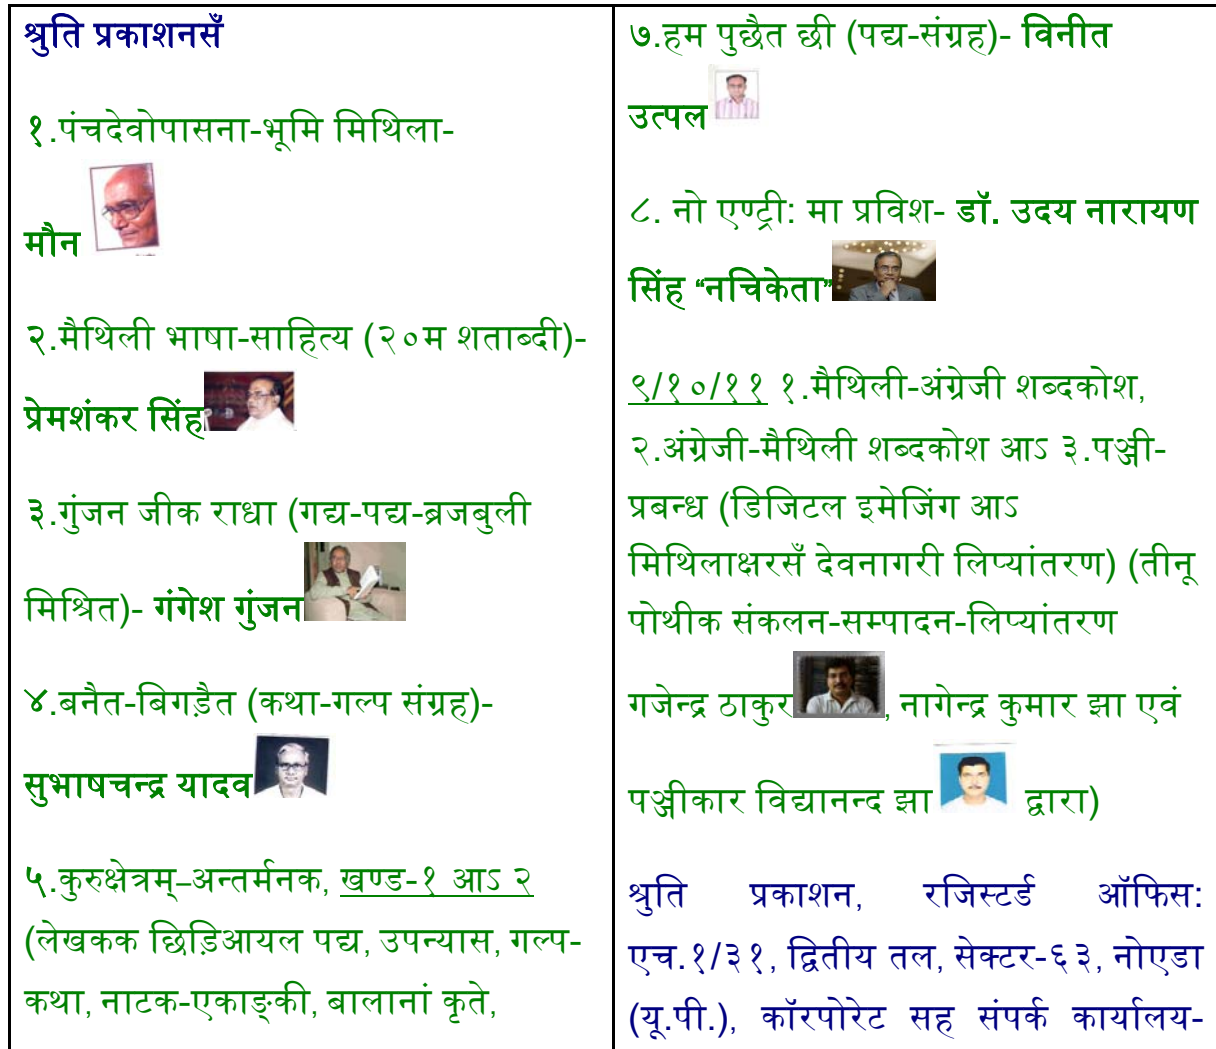 श्रुति प्रकाशनसँ
१.पंचदेवोपासना-भूमि मिथिला-
मौन
२.मैथिली भाषा-साहित्य (२०म शताब्दी)-
प्रेमशंकर सिंह
३.गुंजन जीक राधा (गद्य-पद्य-ब्रजबुली
मिश्रित)- गंगेश गुंजन
४.बनैत-बिगड़ैत (कथा-गल्प संग्रह)-
सुभाषचन्द्र यादव
५.कुरुक्षेत्रम्–अन्तर्मनक, खण्ड-१ आऽ २
(लेखकक छिड़िआयल पद्य, उपन्यास, गल्प-
कथा, नाटक-एकाङ्की, बालानां कृते,
७.हम पुछैत छी (पद्य-संग्रह)- विनीत
उत्पल
८. नो एण्ट्री: मा प्रविश- डॉ. उदय नारायण
सिंह “नचिकेता”
९/१०/११ १.मैथिली-अंग्रेजी शब्दकोश,
२.अंग्रेजी-मैथिली शब्दकोश आऽ ३.पञ्जी-
प्रबन्ध (डिजिटल इमेजिंग आऽ
मिथिलाक्षरसँ देवनागरी लिप्यांतरण) (तीनू
पोथीक संकलन-सम्पादन-लिप्यांतरण
गजेन्द्र ठाकुर, नागेन्द्र कुमार झा एवं
पञ्जीकार विद्यानन्द झा द्वारा)
श्रुति प्रकाशन, रजिस्टर्ड ऑफिस:
एच.१/३१, द्वितीय तल, सेक्टर-६३, नोएडा
(यू.पी.), कॉरपोरेट सह संपर्क कार्यालय-